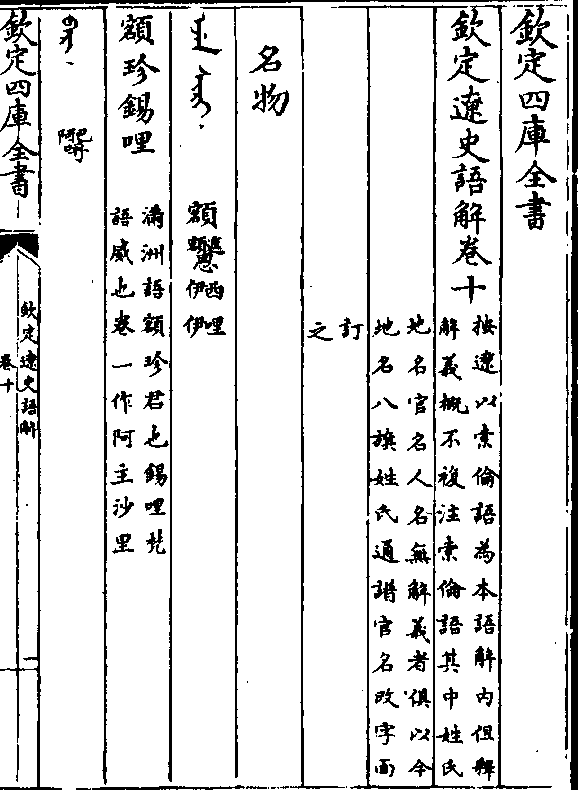 欽定四庫全書
欽定遼史語解卷十
按遼以索倫語為本語解內但釋
解義概不複注索倫語其中姓氏
地名官名人名無解義者俱以今
地名八旗姓氏通譜官名改字面
訂
之
名物
額
西哩
伊伊
額珍錫哩
滿洲語額珍君也錫哩梵
語威也卷一作阿主沙里
巴
阿
欽定四庫全書
欽定遼史語解
卷十
一